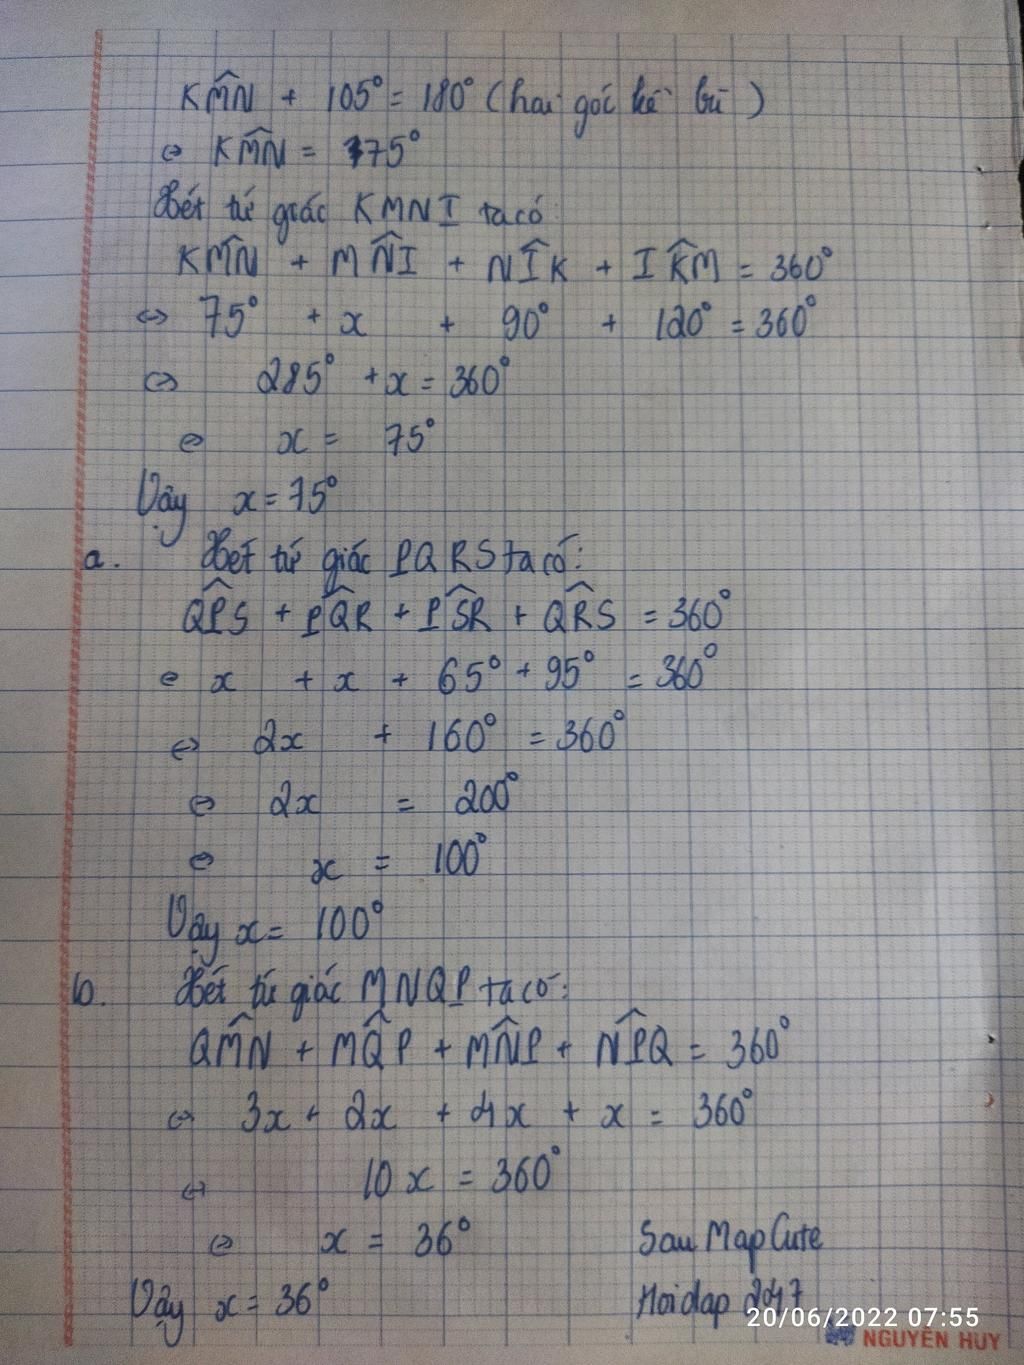 KM̂N + 105° = 180° (hai góc kề bù)
⇔ KM̂N = 75°
Xét tứ giác KMNI ta có
KM̂N + MN̂I + NÎK + IK̂M = 360°
⇔ 75° + x + 90° + 120° = 360°
⇔ 285° + x = 360°
⇔ x = 75°
Vậy x = 75°
a. Xét tứ giác PQRS ta có:
QP̂S + PQ̂R + PŜR + QR̂S = 360°
⇔ x + x + 65° + 95° = 360°
⇔ 2x + 160° = 360°
⇔ 2x = 200°
⇔ x = 100°
Vậy x = 100°
b. Xét tứ giác MNQP ta có:
QM̂N + MQ̂P + MN̂P + NP̂Q = 360°
⇔ 3x + 2x + 4x + x = 360°
⇔ 10x = 360°
⇔ x = 36°
Sau Map Cute
Vậy x = 36°
Hoidap 247
20/06/2022 07:55
NGUYÊN HUY